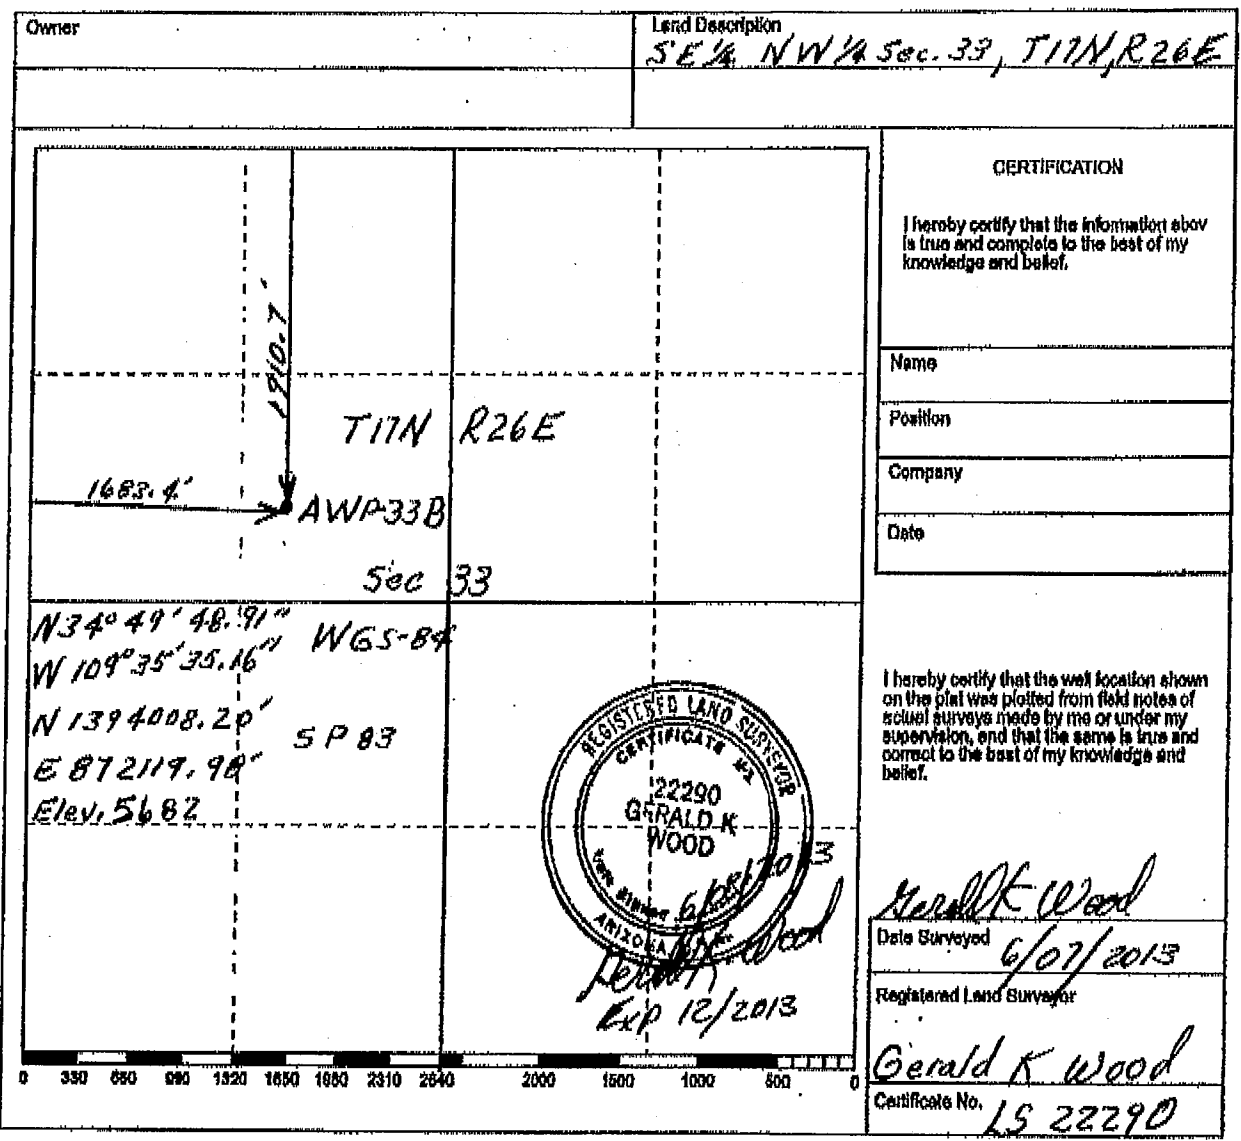 Owner
Land Description
SE¼ NW¼ Sec. 33, T17N, R26E
1910.7'
T17N R26E
1683.4'
AWP-33B
Sec 33
N34° 49' 48.91"
W 109° 35' 35.16"
WGS-84
N 1394008.20'
E 872119.98'
SP 83
Elev. 5682
REGISTERED LAND SURVEYOR
CERTIFICATE No.
22290
GERALD K
WOOD
Date Signed 6/08/2013
ARIZONA
Gerald K. Wood
Exp 12/2013
0 330 660 990 1320 1650 1980 2310 2640 2000 1500 1000 500 0
CERTIFICATION
I hereby certify that the information abov
is true and complete to the best of my
knowledge and belief.
Name
Position
Company
Date
I hereby certify that the well location shown
on the plat was plotted from field notes of
actual surveys made by me or under my
supervision, and that the same is true and
correct to the best of my knowledge and
belief.
Gerald K Wood
Date Surveyed 6/07/2013
Registered Land Surveyor
Gerald K Wood
Certificate No. LS 22290